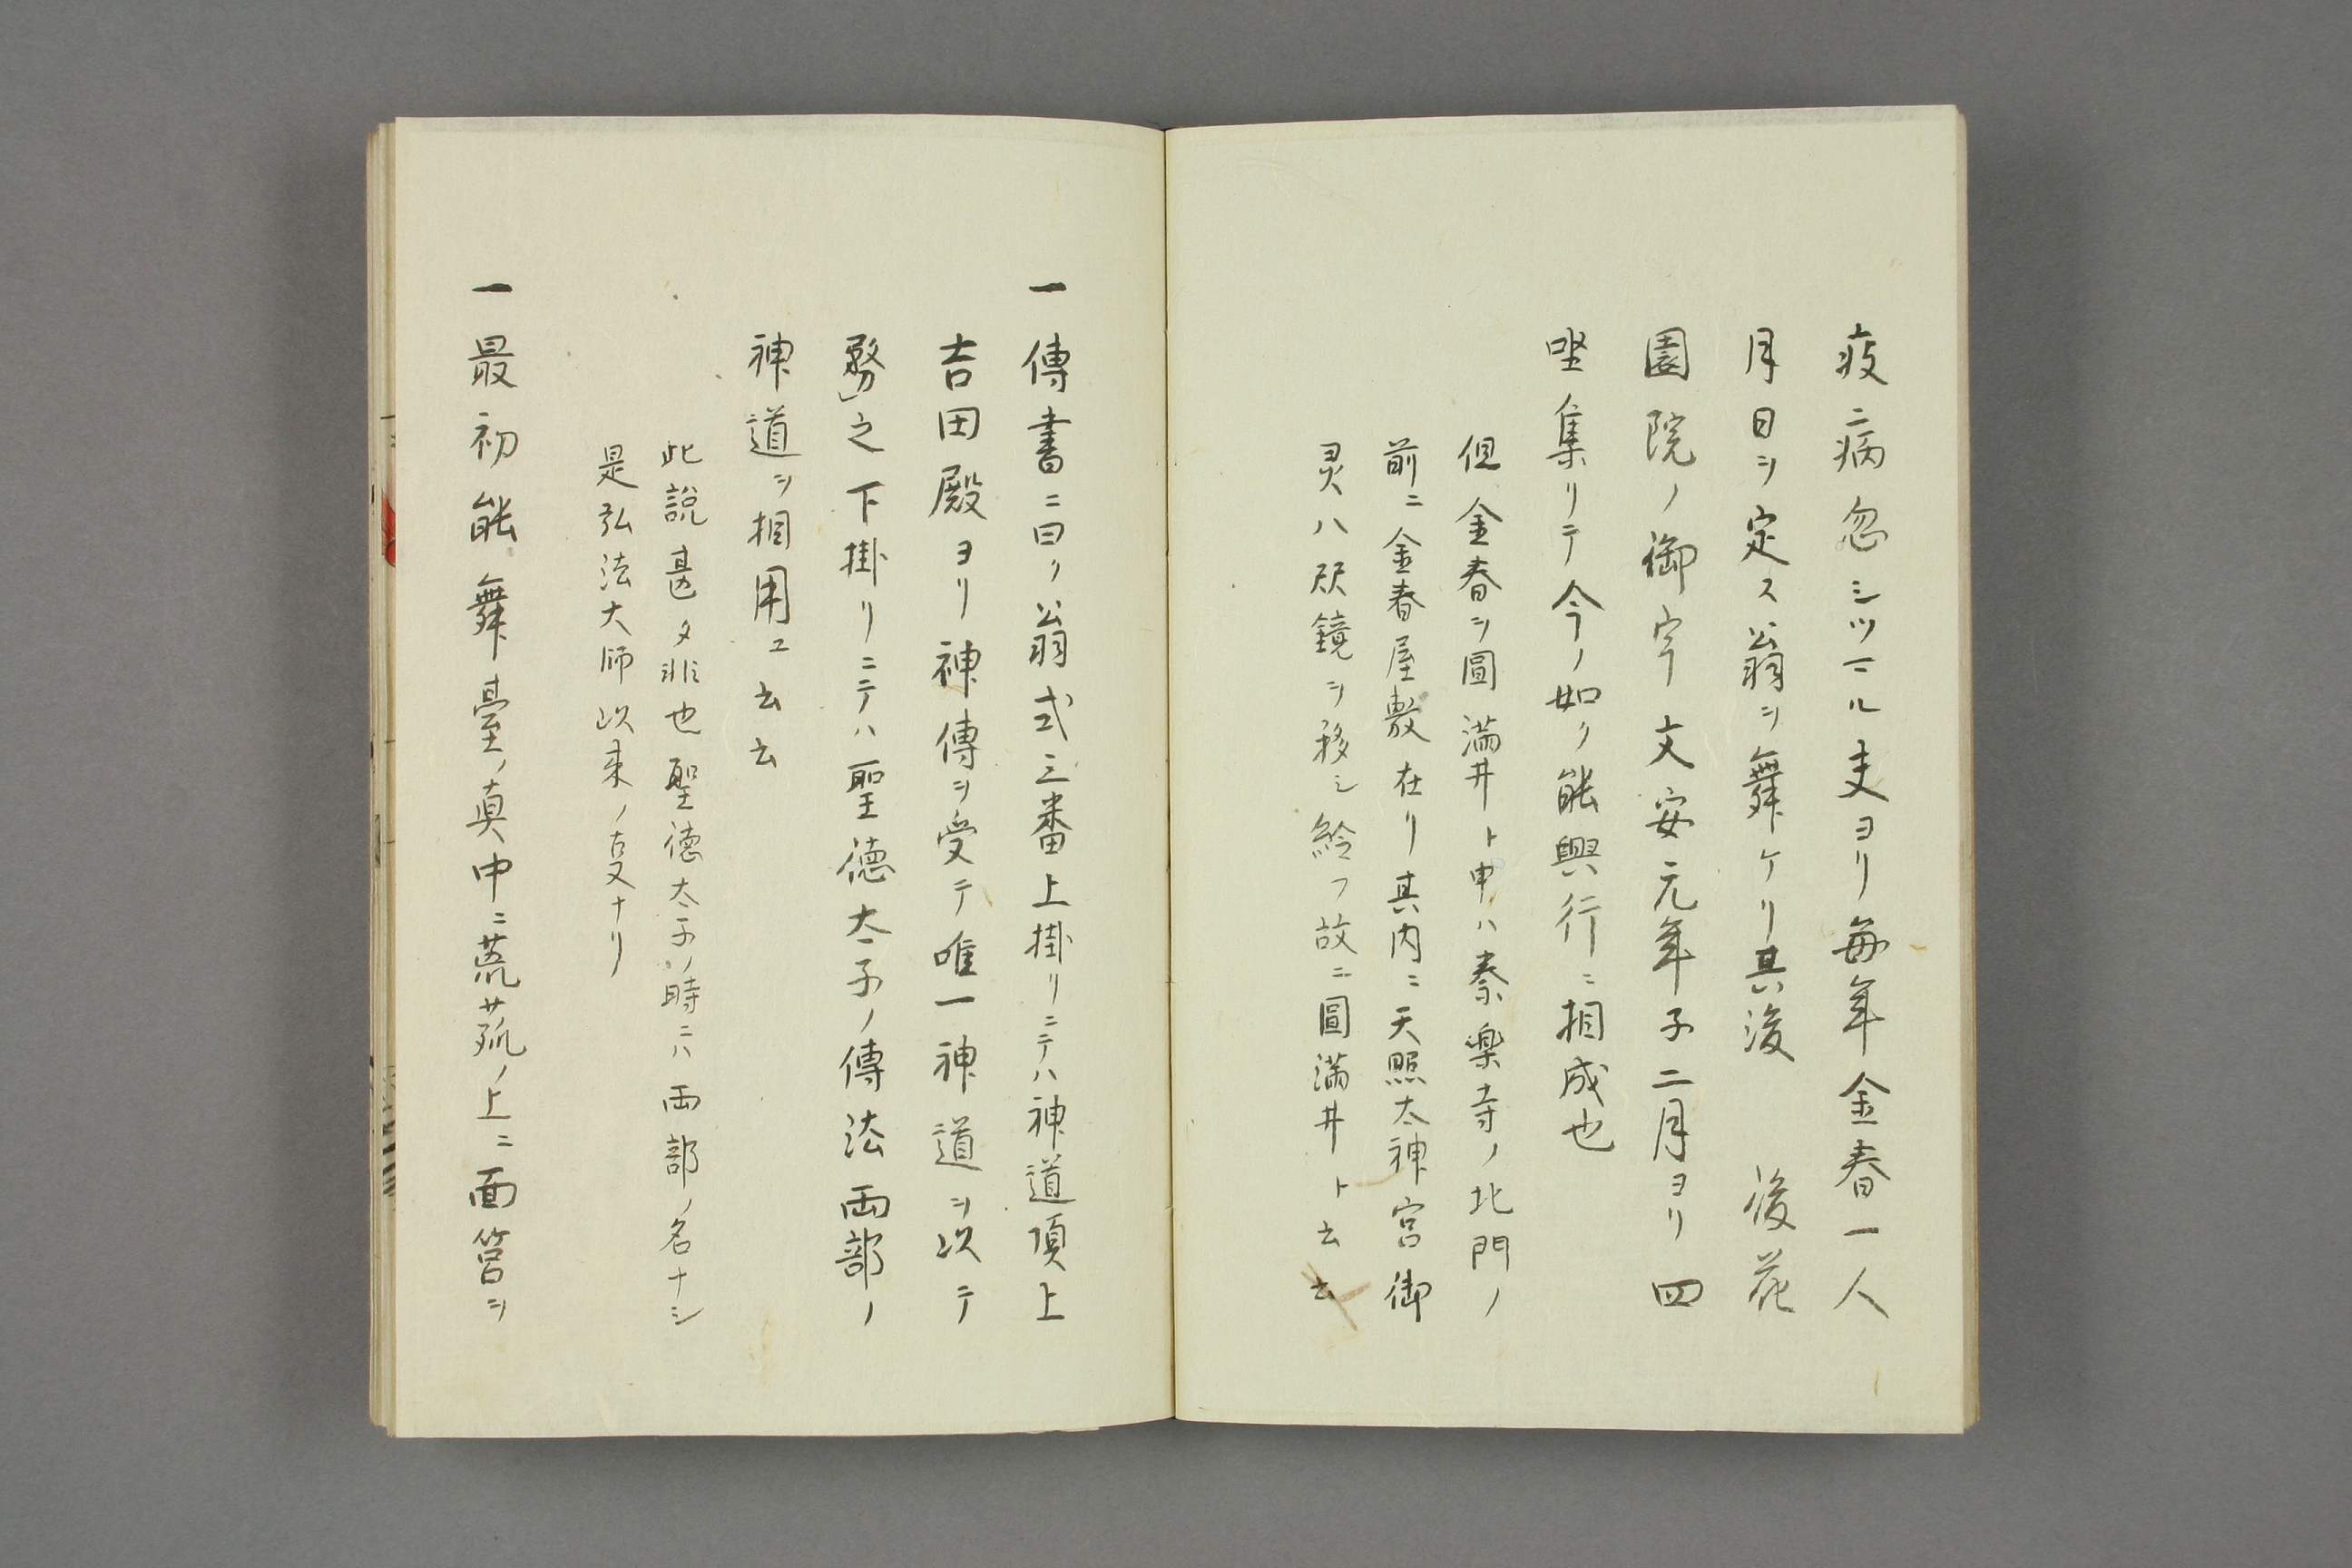 疫ニ病忽シツマル夫ヨリ毎年金春一人
月日ヲ定ス翁ヲ舞ケリ其後　後花
園院ノ御宇文安元年子二月ヨリ四
坐集リテ今ノ如ク能興行ニ相成也
但金春ヲ圓満井ト申ハ秦楽寺ノ北門ノ
前ニ金春屋敷在リ其内ニ天照太神宮御
灵八咫鏡ヲ移シ給フ故ニ圓満井ト云云
一傳書ニ曰ク翁式三番上掛リニテハ神道頂上
吉田殿ヨリ神傳ヲ受テ唯一神道ヲ以テ
務之下掛リニテハ聖徳太子ノ傳法両部ノ
神道ヲ相用ユ云云
此説甚タ非也聖徳太子ノ時ニハ両部ノ名ナシ
是弘法大師以来ノ叓ナリ
一最初能舞臺ノ真中ニ荒菰ノ上ニ面筥ヲ